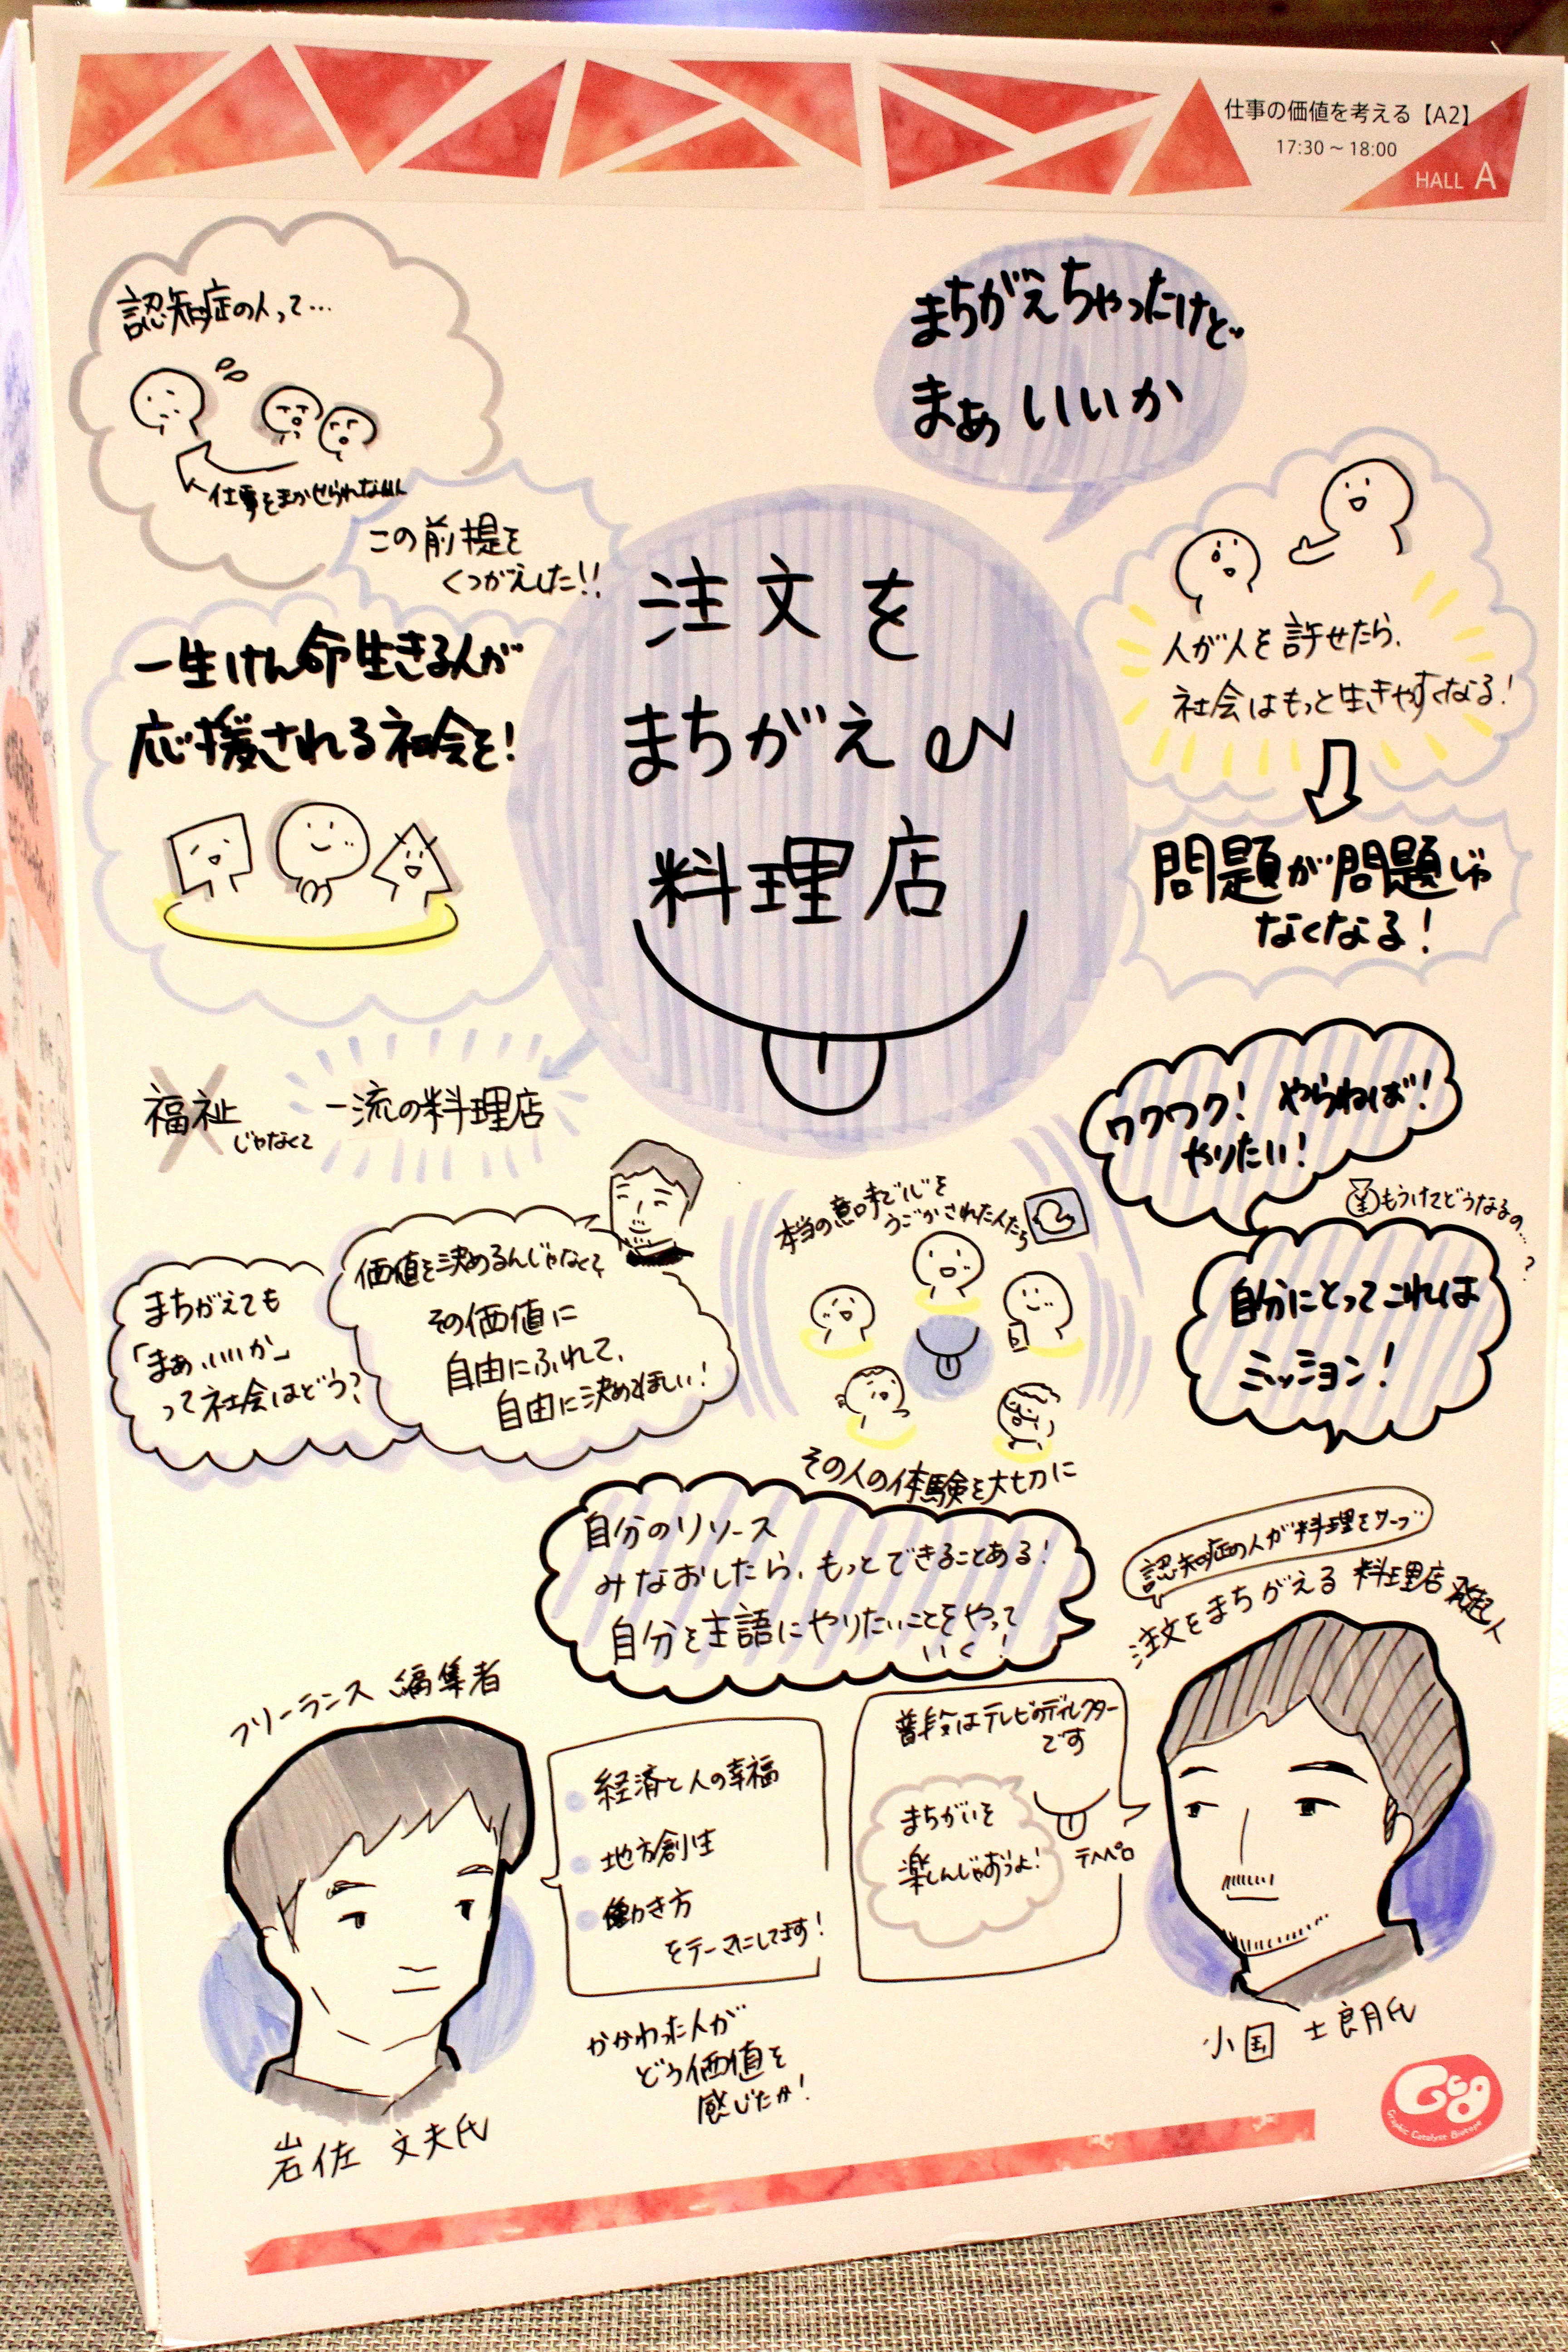 仕事の価値を考える【A2】
17:30～18:00
HALL A
認知症の人って…
仕事をまかせられない…
この前提を
くつがえした!!
まちがえちゃったけど
まぁ いいか
注文を
まちがえる
料理店
一生けん命生きる人が
応援される社会を!
人が人を許せたら、
社会はもっと生きやすくなる!
問題が問題じゃ
なくなる!
福祉
じゃなくて
一流の料理店
ワクワク! やらねば!
やりたい!
¥もうけてどうなるの…?
自分にとってこれは
ミッション!
本当の意味で心を
うごかされた人たち
その人の体験を大切に
まちがえても
「まぁ、いいか」
って社会はどう?
価値を決めるんじゃなくて
その価値に
自由にふれて、
自由に決めてほしい!
自分のリソース
みなおしたら、もっとできることある!
自分を主語にやりたいことをやって
いく!
認知症の人が料理をサーブ
注文をまちがえる 料理店 発起人
フリーランス 編集者
経済と人の幸福
地方創生
働き方
をテーマにしてます!
普段はテレビのディレクター
です
まちがいを
楽しんじゃおうよ!
テヘペロ
かかわった人が
どう価値を
感じたか!
岩佐 文夫氏
小国 士朗氏
GCB
Graphic Catalyst Biotope